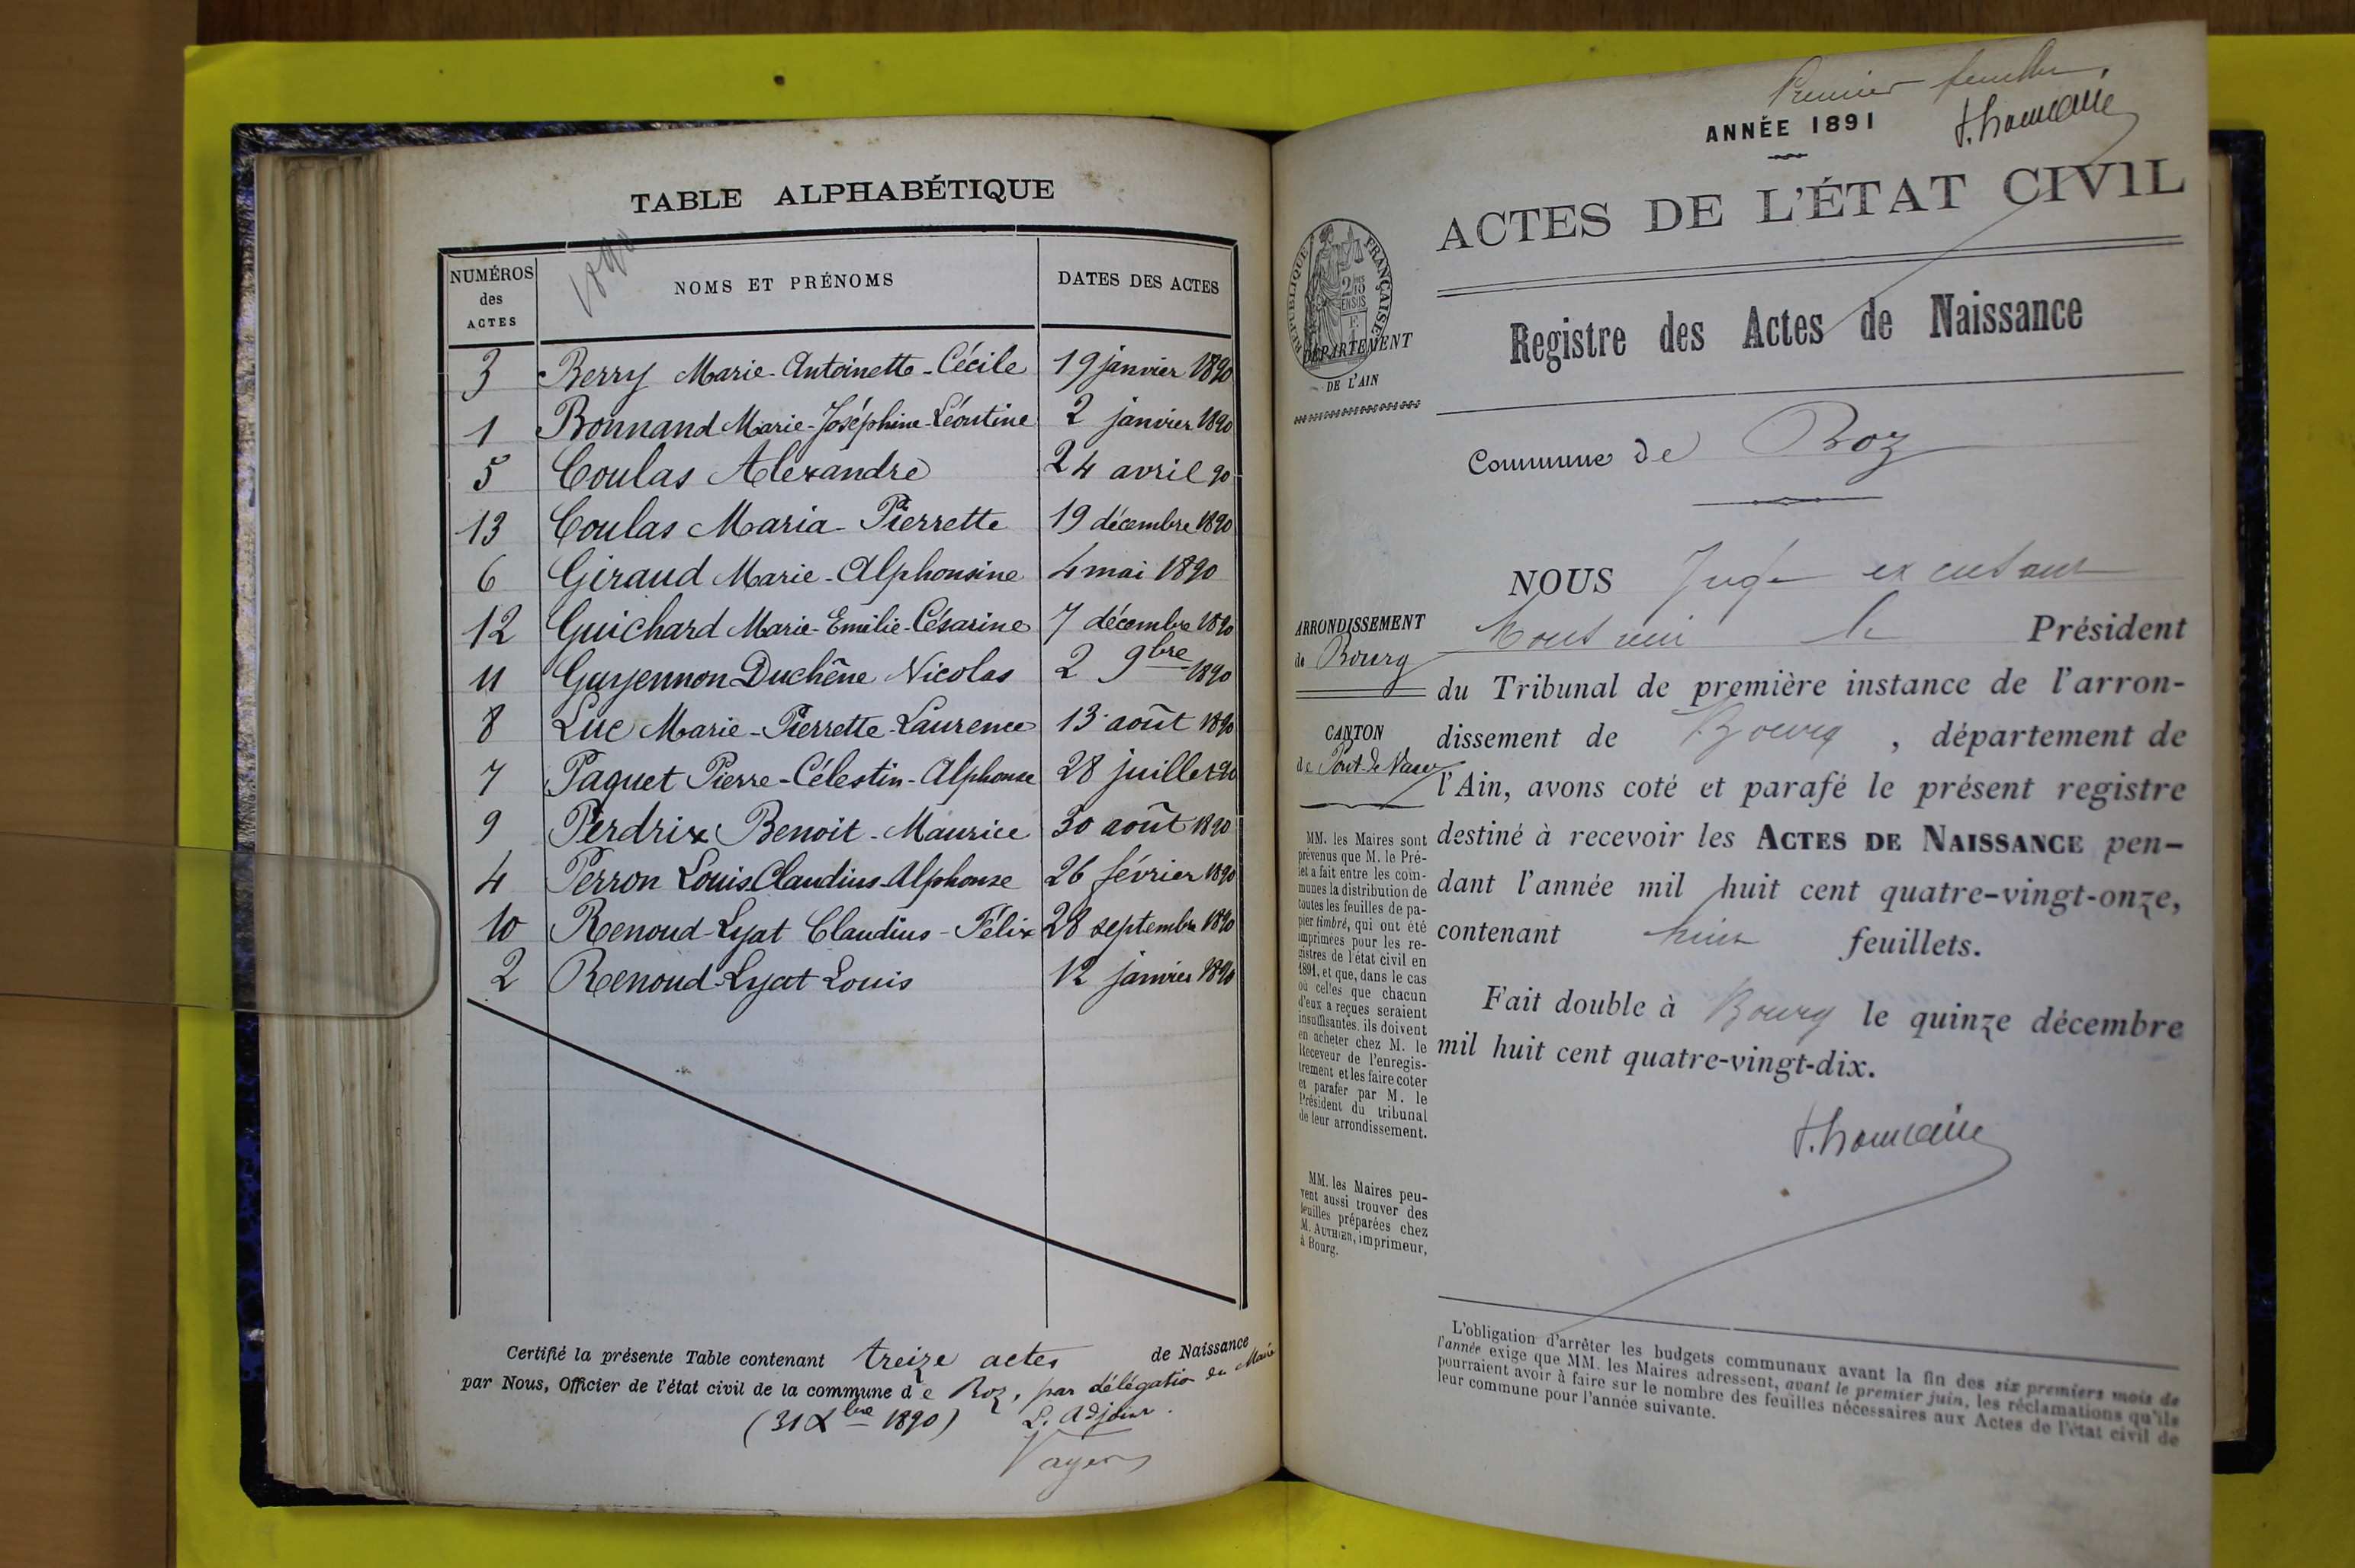 TABLE ALPHABÉTIQUE
1890
NUMÉROS des ACTES
NOMS ET PRÉNOMS
DATES DES ACTES
3 Berry Marie-Antoinette-Cécile 19 janvier 1890
1 Bonnand Marie-Joséphine-Léontine 2 janvier 1890
5 Coulas Alexandre 24 avril 90
13 Coulas Maria-Pierrette 19 décembre 1890
6 Giraud Marie-Alphonsine 4 mai 1890
12 Guichard Marie-Emilie-Césarine 7 décembre 1890
11 Guyennon Duchêne Nicolas 2 9bre 1890
8 Luc Marie-Pierrette-Laurence 13 août 1890
7 Paquet Pierre-Célestin-Alphonse 28 juillet 90
9 Perdrix Benoit-Maurice 30 août 1890
4 Perron Louis Claudius Alphonse 26 février 1890
10 Renoud-Lyat Claudius-Félix 28 septembre 1890
2 Renoud-Lyat Louis 12 janvier 1890
Certifié la présente Table contenant treize actes de Naissance
par Nous, Officier de l'état civil de la commune de Boz, par délégation du Maire
(31 Xbre 1890) L. Adjoint.
Premier feuillet
ANNÉE 1891
ACTES DE L'ÉTAT CIVIL
RÉPUBLIQUE FRANÇAISE
DÉPARTEMENT
DE L'AIN
Registre des Actes de Naissance
Commune de Boz
ARRONDISSEMENT
de Bourg
CANTON
de Pont-de-Vaux
MM. les Maires sont
prévenus que M. le Pré-
fet a fait entre les com-
munes la distribution de
toutes les feuilles de pa-
pier timbré, qui ont été
imprimées pour les re-
gistres de l'état civil en
1891, et que, dans le cas
où celles que chacun
d'eux a reçues seraient
insuffisantes, ils doivent
en acheter chez M. le
Receveur de l'enregis-
trement et les faire coter
et parafer par M. le
Président du tribunal
de leur arrondissement.
MM. les Maires peu-
vent aussi trouver des
feuilles préparées chez
M. AUTHIER, imprimeur,
à Bourg.
NOUS Juge
le Président
du Tribunal de première instance de l'arron-
dissement de Bourg, département de
l'Ain, avons coté et parafé le présent registre
destiné à recevoir les ACTES DE NAISSANCE pen-
dant l'année mil huit cent quatre-vingt-onze,
contenant feuillets.
Fait double à Bourg le quinze décembre
mil huit cent quatre-vingt-dix.
L'obligation d'arrêter les budgets communaux avant la fin des six premiers mois de
l'année exige que MM. les Maires adressent, avant le premier juin, les réclamations qu'ils
pourraient avoir à faire sur le nombre des feuilles nécessaires aux Actes de l'état civil de
leur commune pour l'année suivante.